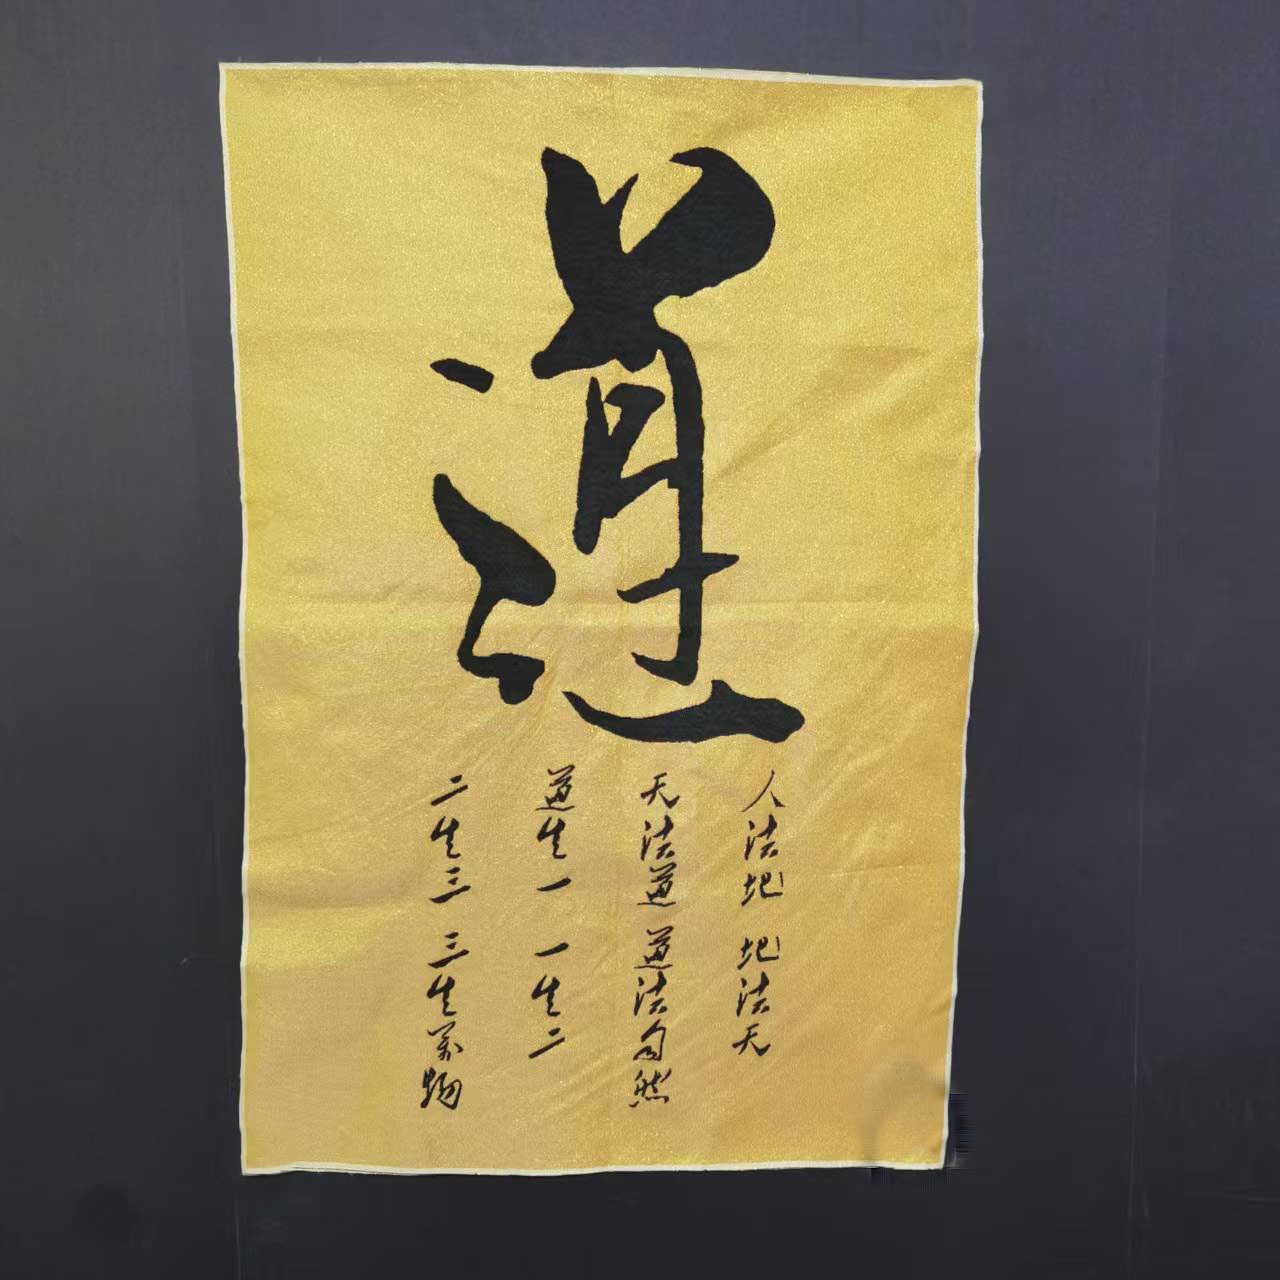 道
人法地 地法天
天法道 道法自然
道生一 一生二
二生三 三生萬物